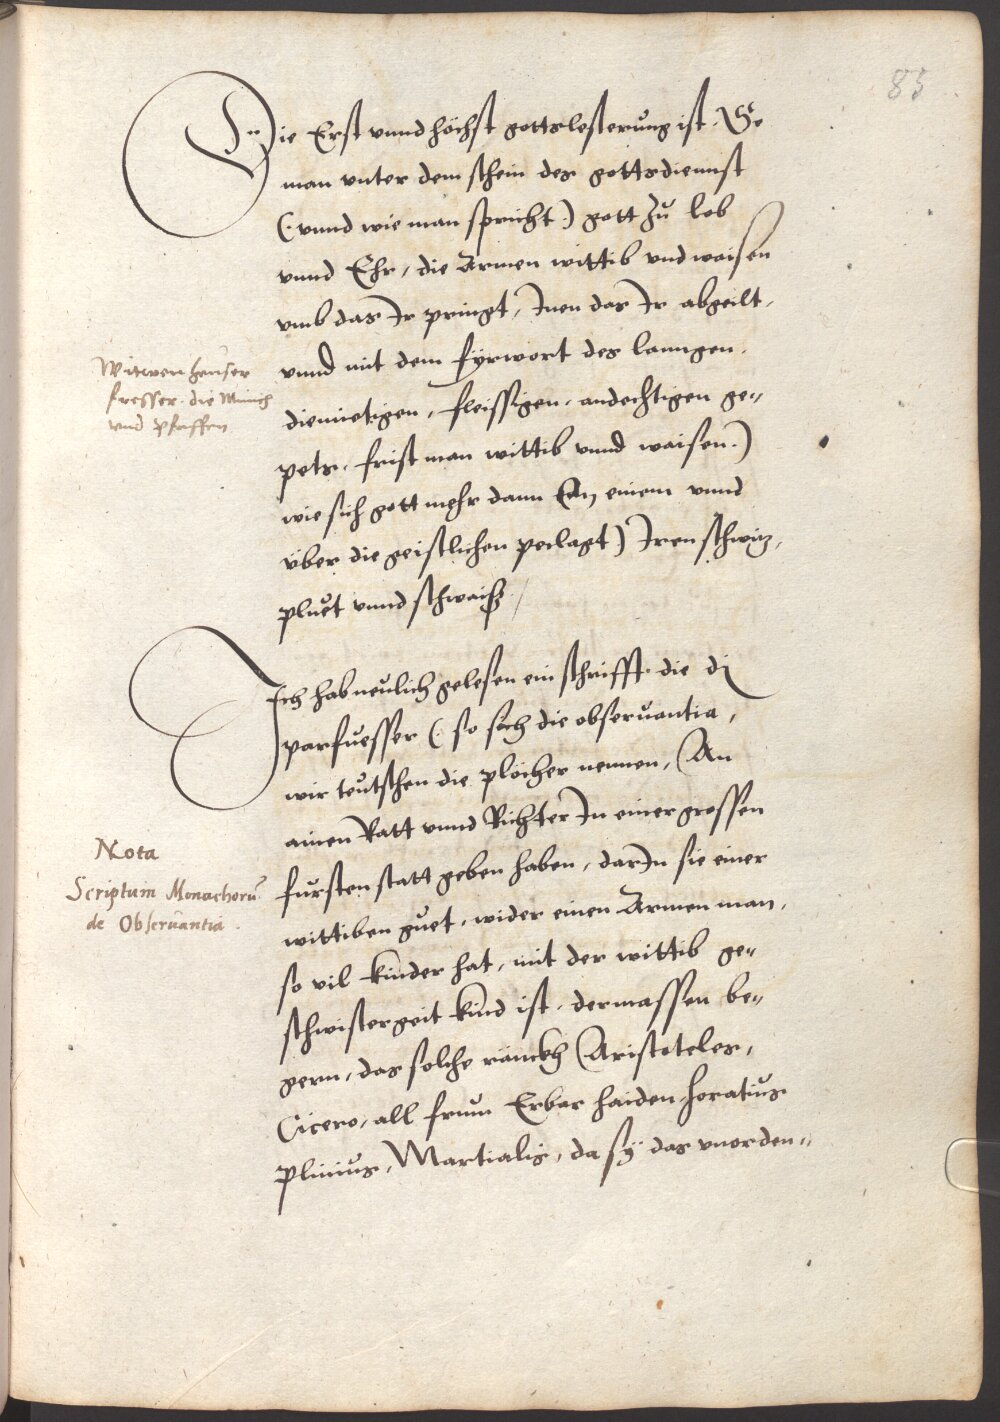 85
Die Erst vnnd höchst gottslesterung ist. So
man vnter dem schein des gottsdiennst
(: vnnd wie man spricht :) gott zu lob
vnnd Ehr, die Armen wittib vnd waisen
vmb das Ir pringt, Inen das Ir abgeilt,
vnnd mit dem fyrwort des lanngen.
diemietigen, fleissigen, andechtigen ge=
pets, frist man wittib vnnd waisen :)
wie sich gott mehr dann an einem vnnd
über die geistlichen peclagt) Iren schwitz,
pluet vnnd schwaiß /
Witwen heuser
fresser. die Münich
vnd pfaffen
Ich hab neulich gelesen ein schrifft. die di
parfuesser (: so sich die obseruantia,
wir teutschen die plöcher nennen, An
ainen Ratt vnnd Richter In einer grossen
fürsten statt geben haben, darIn sie einer
wittiben guet, wider einen Armen man,
so vil kinder hat, mit der wittib ge=
schwistergeit kind ist, dermassen be=
gern, das solche ränckh Aristoteles,
Cicero, all frum Erbar haiden, horatius
plinius, Martialis, da sy das vnorden=
Nota
Scriptum Monachorū
de Obseruantia.